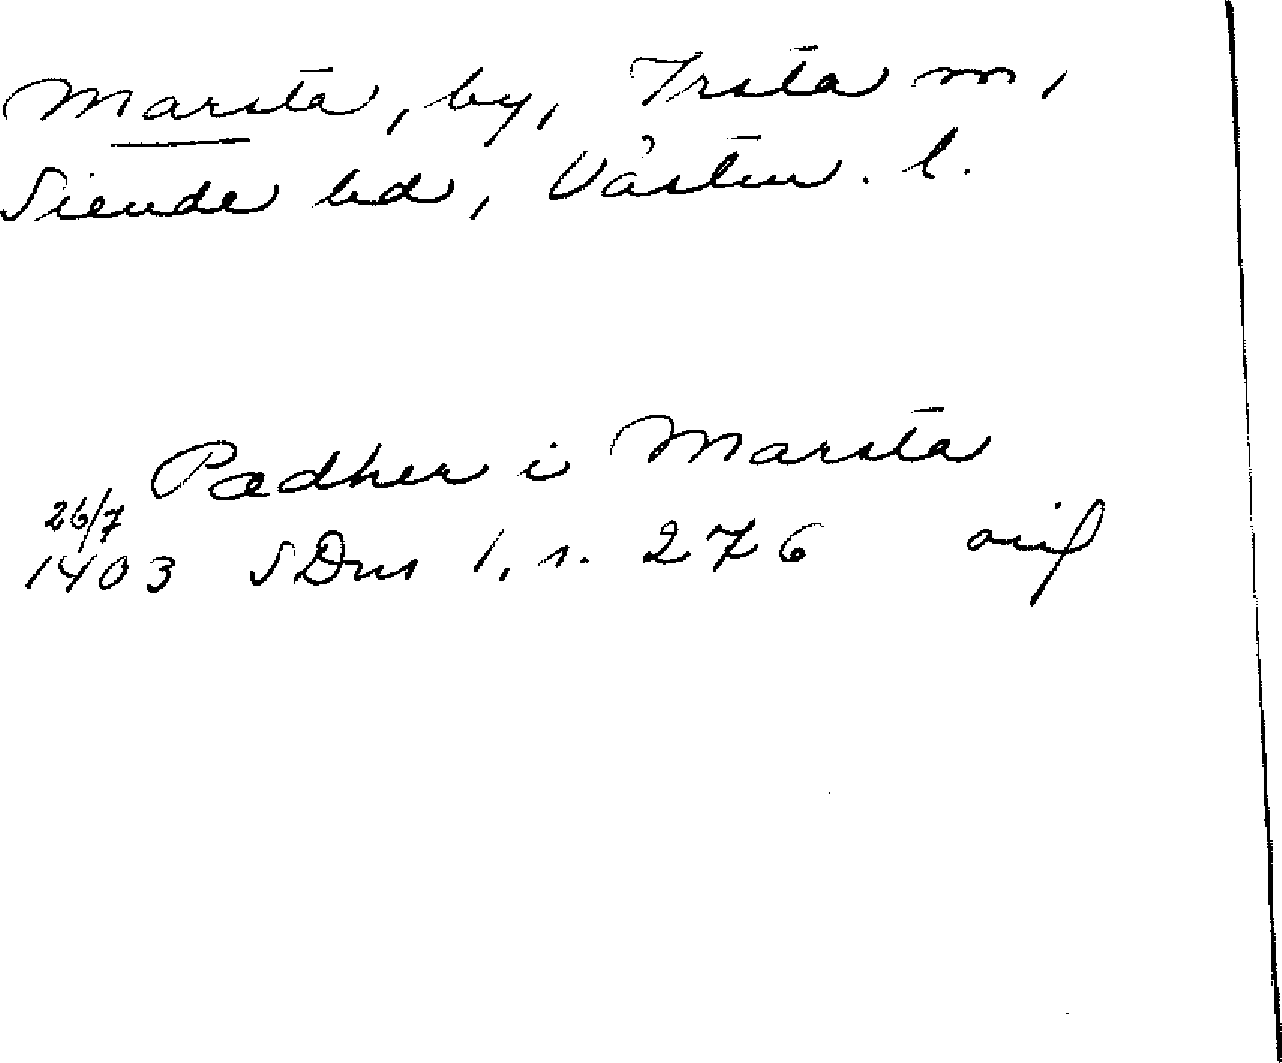 Marsta, by, Irsta sn,
Siende hd, Västm. l.
Pædher i Marsta
26/7
1403 SDns 1, s. 276 orig